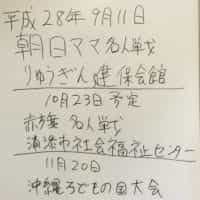 平成28年9月11日
朝日ママ名人戦
りゅうぎん健保会館
10月23日予定
赤旗名人戦
浦添市社会福祉センター
11月20日
沖縄こどもの国大会